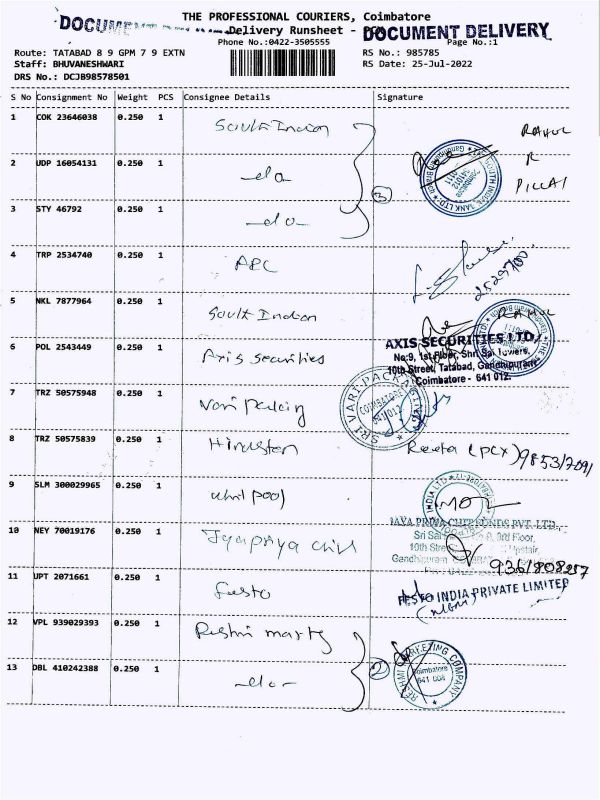 THE PROFESSIONAL COURIERS, Coimbatore
Delivery Runsheet -
DOCUMENT DELIVERY
Phone No.:0422-3505555
Page No.:1
Route: TATABAD 8 9 GPM 7 9 EXTN
RS No.: 985785
Staff: BHUVANESHWARI
RS Date: 25-Jul-2022
DRS No.: DCJB98578501
S No Consignment No Weight PCS Consignee Details Signature
1 COK 23646038 0.250 1 South Indian
RAHUL
R
PILLAI
2 UDP 16054131 0.250 1 -do-
3
3 STY 46792 0.250 1 -do-
4 TRP 2534740 0.250 1 APC
5 NKL 7877964 0.250 1 South Indian
RAHUL
6 POL 2543449 0.250 1 Axis securities
AXIS SECURITIES LTD,
No:9, 1st Floor, Shri Sai Towers,
10th Street, Tatabad, Gandhipuram
Coimbatore - 641 012.
7 TRZ 50575948 0.250 1 Vari packing
SRI VARI PACKAGING
COIMBATORE
641012
8 TRZ 50575839 0.250 1 Hindustan
9 SLM 300029965 0.250 1 whirlpool
10 NEY 70019176 0.250 1 Jayapriya chit
JAYA PRIYA CHIT FUNDS PVT. LTD.,
3rd Floor,
10th Street
11 UPT 2071661 0.250 1 Festo
FESTO INDIA PRIVATE LIMITED
12 VPL 939029393 0.250 1 Reshmi marketg
13 DBL 410242388 0.250 1 -do-
2
RESHMI MARKETING COMPANY
Coimbatore
641 008